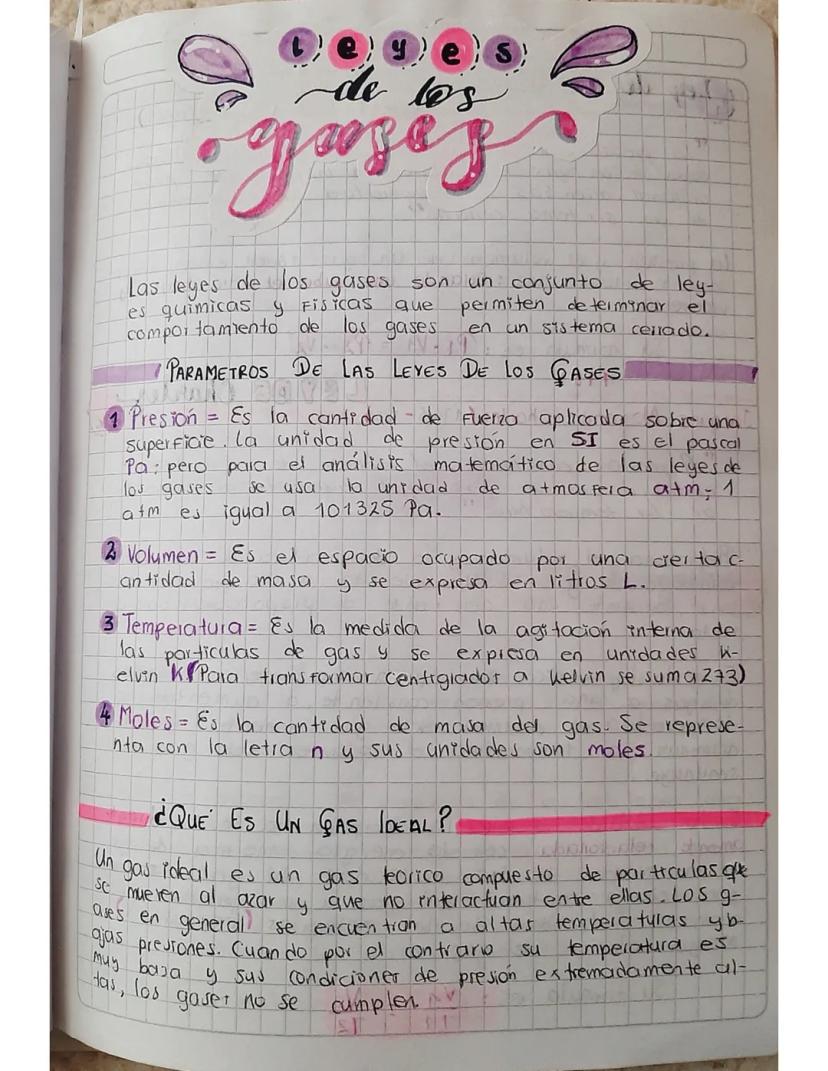 Leyes
de los
gases
Las leyes de los gases son un conjunto de ley-
es químicas y Físicas que permiten determinar el
comportamiento de los gases en un sistema cerrado.
PARAMETROS DE LAS LEYES DE LOS GASES
1 Presión = Es la cantidad de Fuerza aplicada sobre una
superficie. la unidad de presión en SI es el pascal
Pa: pero para el análisis matemático de las leyes de
los gases se usa la unidad de atmosfera atm; 1
atm es igual a 101325 Pa.
2 Volumen = Es el espacio ocupado por una cierta c-
antidad de masa y se expresa en litros L.
3 Temperatura = Es la medida de la agitación interna de
las particulas de gas y se expresa en unidades k-
elvin K (Para transformar centigrados a kelvin se suma 273)
4 Moles = Es la cantidad de masa del gas. Se represe-
nta con la letra n y sus unidades son moles.
¿QUÉ ES UN GAS IDEAL?
Un gas ideal es un gas teorico compuesto de particulas que
se mueven al azar y que no interactuan entre ellas. Los g-
ases en general se encuentran a altas temperaturas y b-
ajas presiones. Cuando por el contrario su temperatura es
muy baja y sus condiciones de presión extremadamente al-
tas, los gases no se cumplen